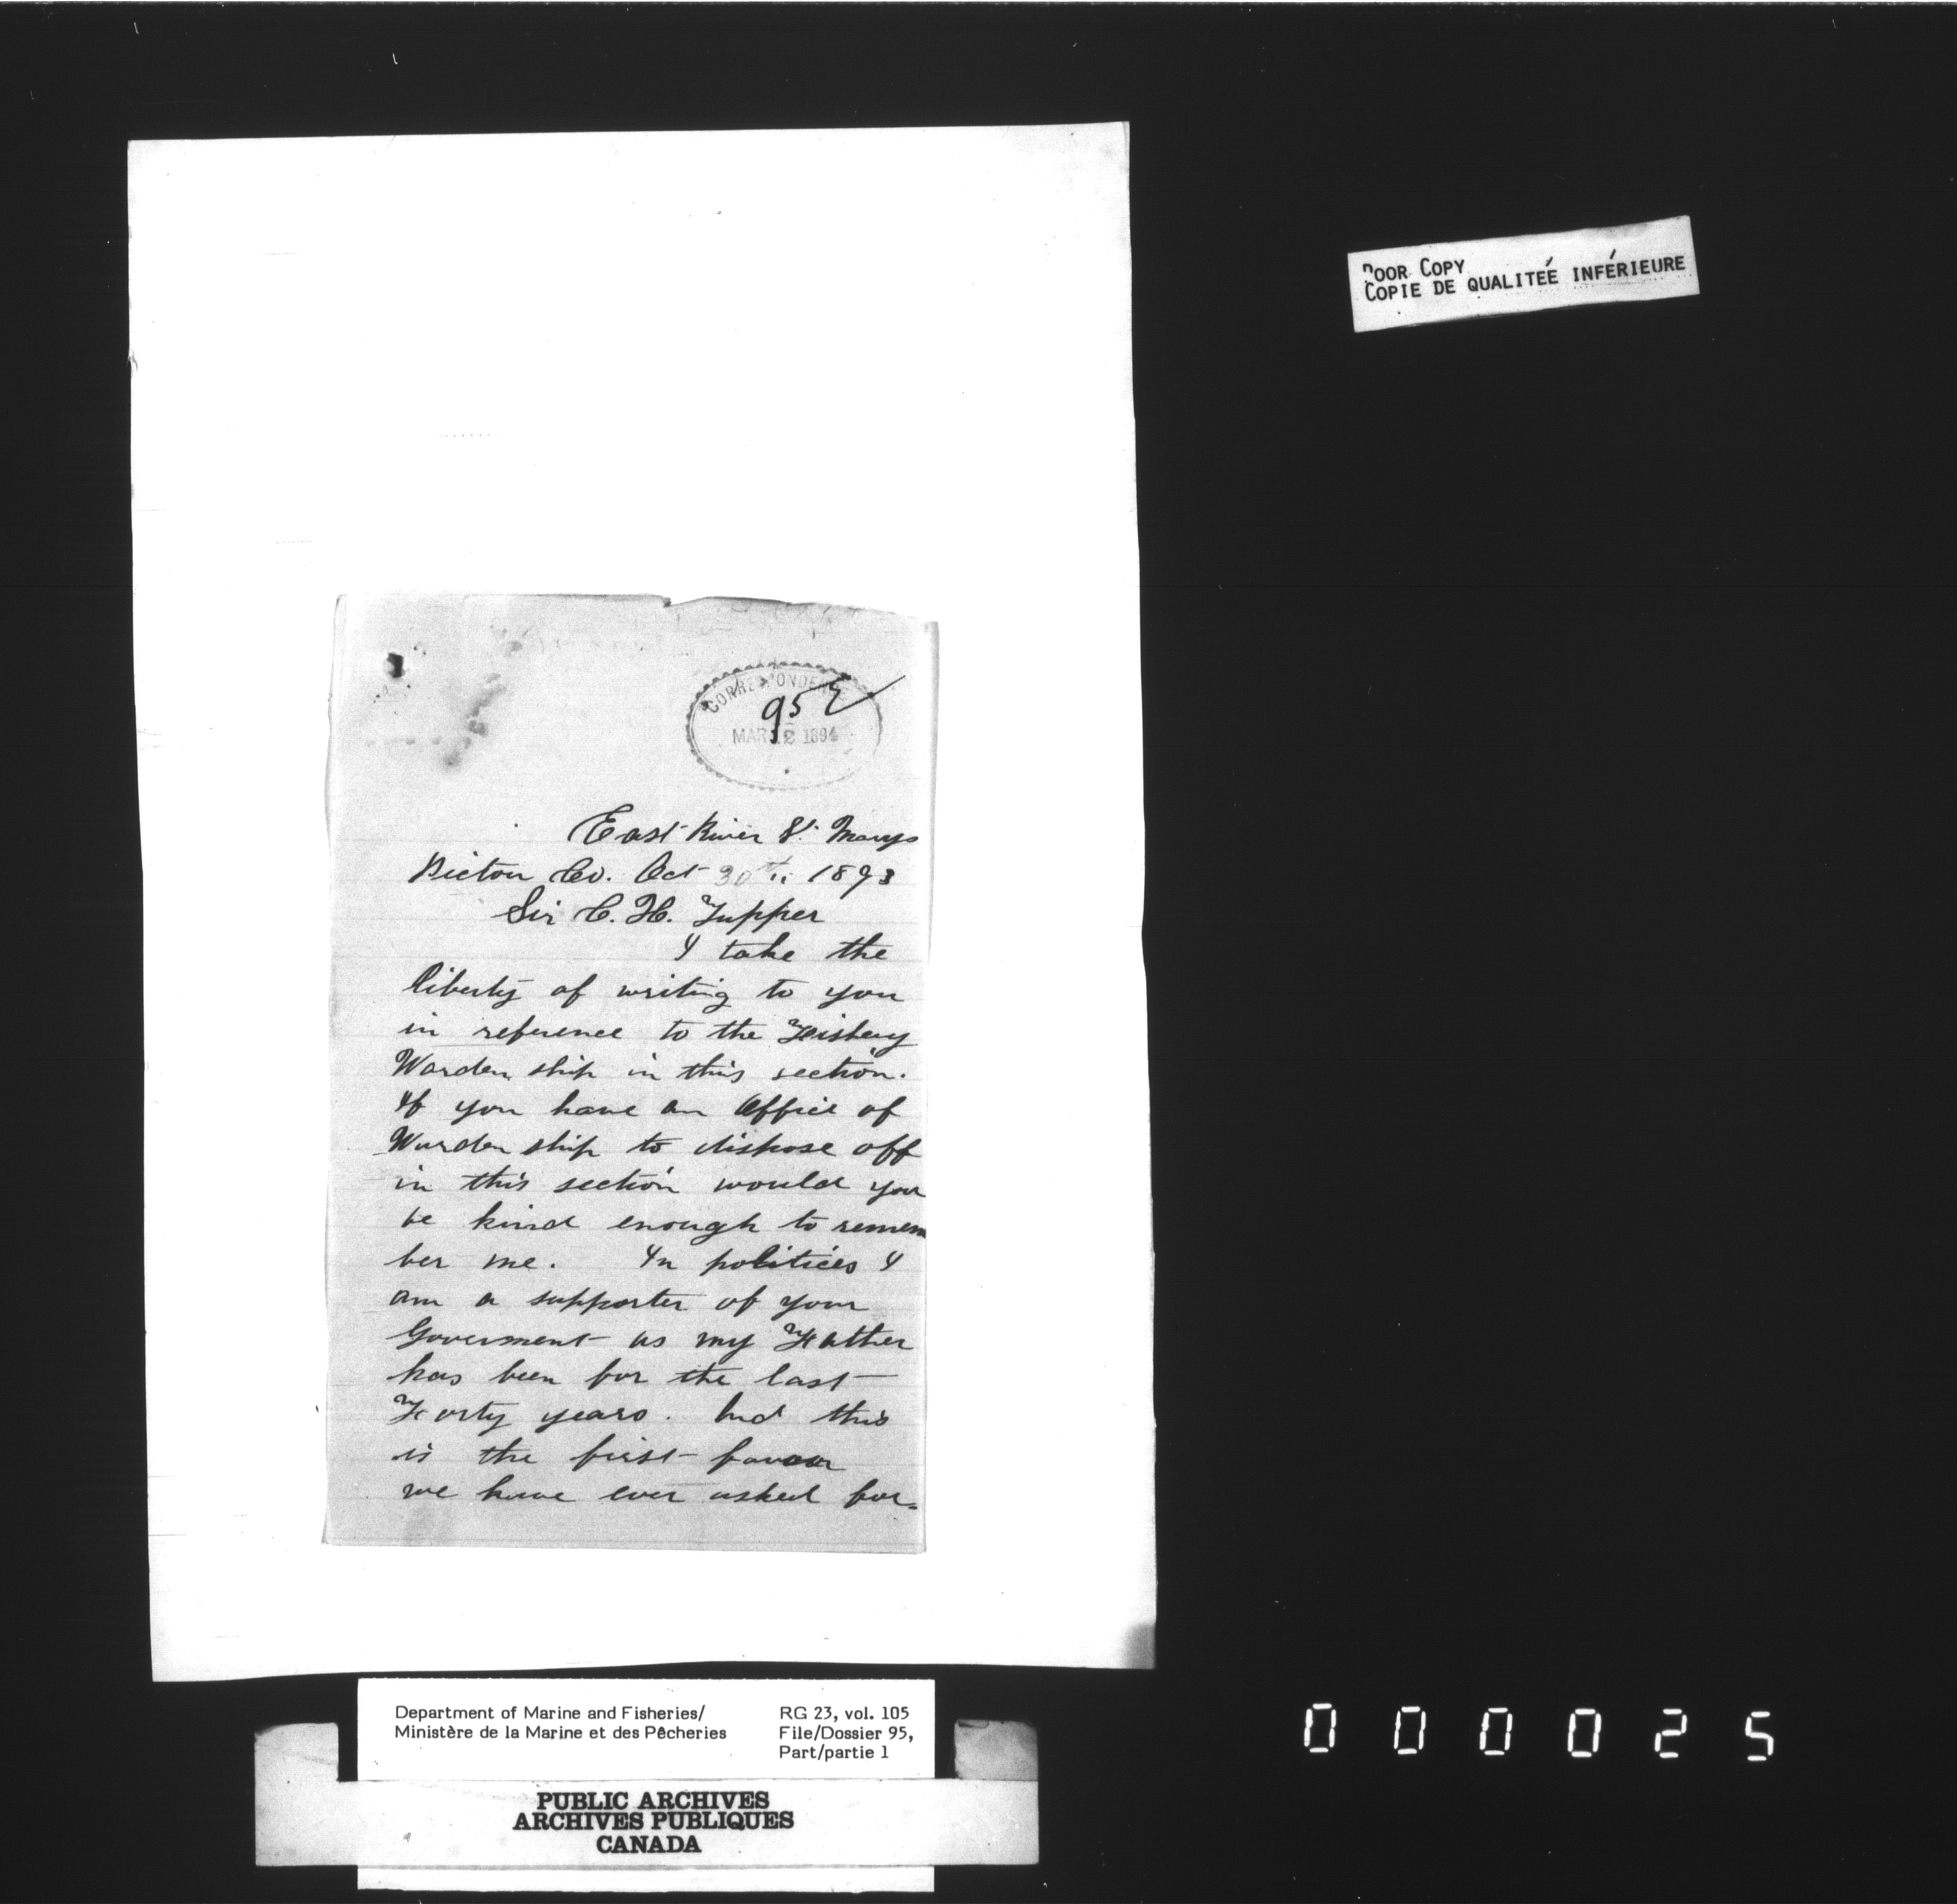 POOR COPY
COPIE DE QUALITEÉ INFÉRIEURE
CORRESPONDENCE
952
MAR 12 1894
East River St. Marys
Pictou Co. Oct 30th 1893
Sir C. H. Tupper
I take the
liberty of writing to you
in reference to the Fishery
Warden ship in this section.
If you have an Office of
Warden ship to dispose off
in this section would you
be kind enough to remem
ber me. In politics I
am a supporter of your
Goverment as my Father
has been for the last
Forty years. And this
is the first favour
we have ever asked for.
Department of Marine and Fisheries/
Ministère de la Marine et des Pêcheries
RG 23, vol. 105
File/Dossier 95,
Part/partie 1
PUBLIC ARCHIVES
ARCHIVES PUBLIQUES
CANADA
000025